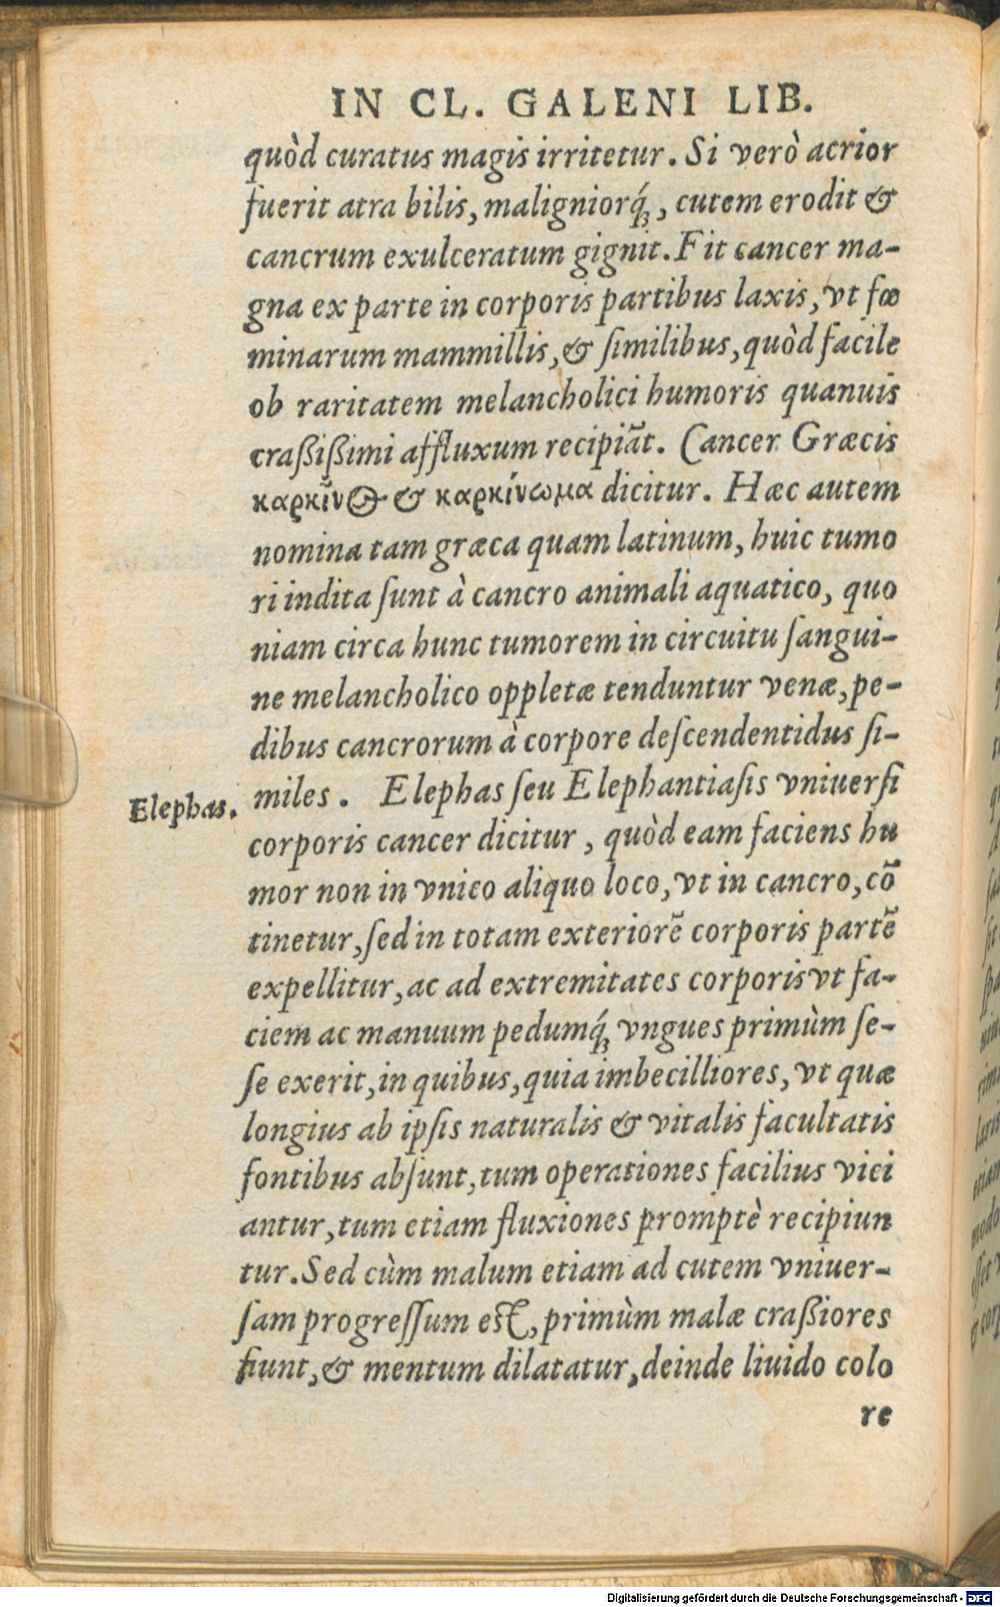 IN CL. GALENI LIB.
quòd curatus magis irritetur. Si verò acrior
fuerit atra bilis, maligniorq́ꝫ, cutem erodit &
cancrum exulceratum gignit. Fit cancer ma-
gna ex parte in corporis partibus laxis, vt fœ
minarum mammillis, & ſimilibus, quòd facile
ob raritatem melancholici humoris quanuis
craßißimi affluxum recipiãt. Cancer Græcis
καρκῖνος & καρκίνωμα dicitur. Hæc autem
nomina tam græca quam latinum, huic tumo
ri indita ſunt à cancro animali aquatico, quo
niam circa hunc tumorem in circuitu ſangui-
ne melancholico oppletæ tenduntur venæ, pe-
dibus cancrorum à corpore deſcendentidus ſi-
Elephas.
miles. Elephas ſeu Elephantiaſis vniuerſi
corporis cancer dicitur, quòd eam faciens hu
mor non in vnico aliquo loco, vt in cancro, cõ
tinetur, ſed in totam exteriorẽ corporis partẽ
expellitur, ac ad extremitates corporis vt fa-
ciem ac manuum pedumq́ꝫ vngues primùm ſe-
ſe exerit, in quibus, quia imbecilliores, vt quæ
longius ab ipſis naturalis & vitalis facultatis
fontibus abſunt, tum operationes facilius vici
antur, tum etiam fluxiones promptè recipiun
tur. Sed cùm malum etiam ad cutem vniuer-
ſam progreſſum eſt, primùm malæ craßiores
fiunt, & mentum dilatatur, deinde liuido colo
re
Digitalisierung gefördert durch die Deutsche Forschungsgemeinschaft - DFG